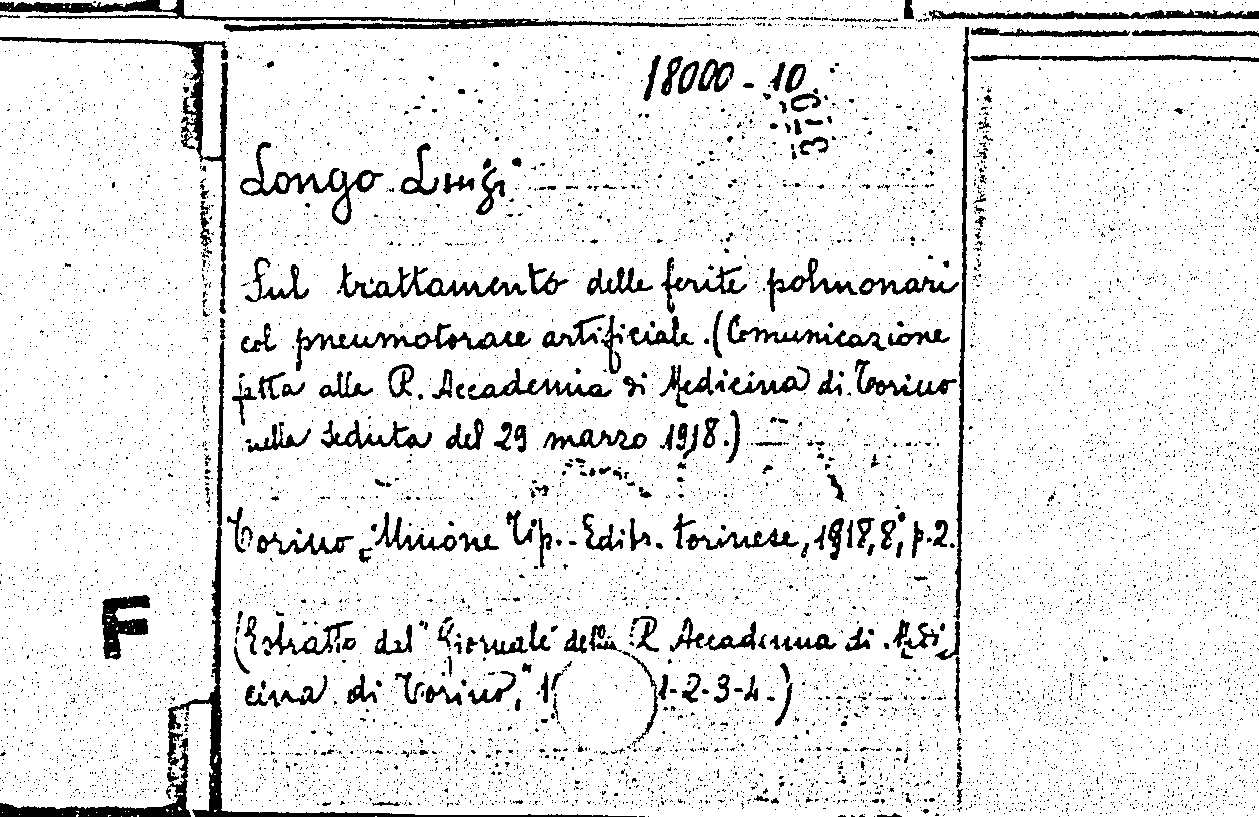 18000 - 10
379
Longo Luigi
Sul trattamento delle ferite polmonari
col pneumotorace artificiale. (Comunicazione
fatta alla R. Accademia di Medicina di Torino
nella seduta del 29 marzo 1918.) —
Torino, "Unione Tip.-Editr. torinese, 1918, 8°, p. 2.
F
(Estratto dal "Giornale della R. Accademia di Medi
cina di Torino," 1 1-2-3-4.)